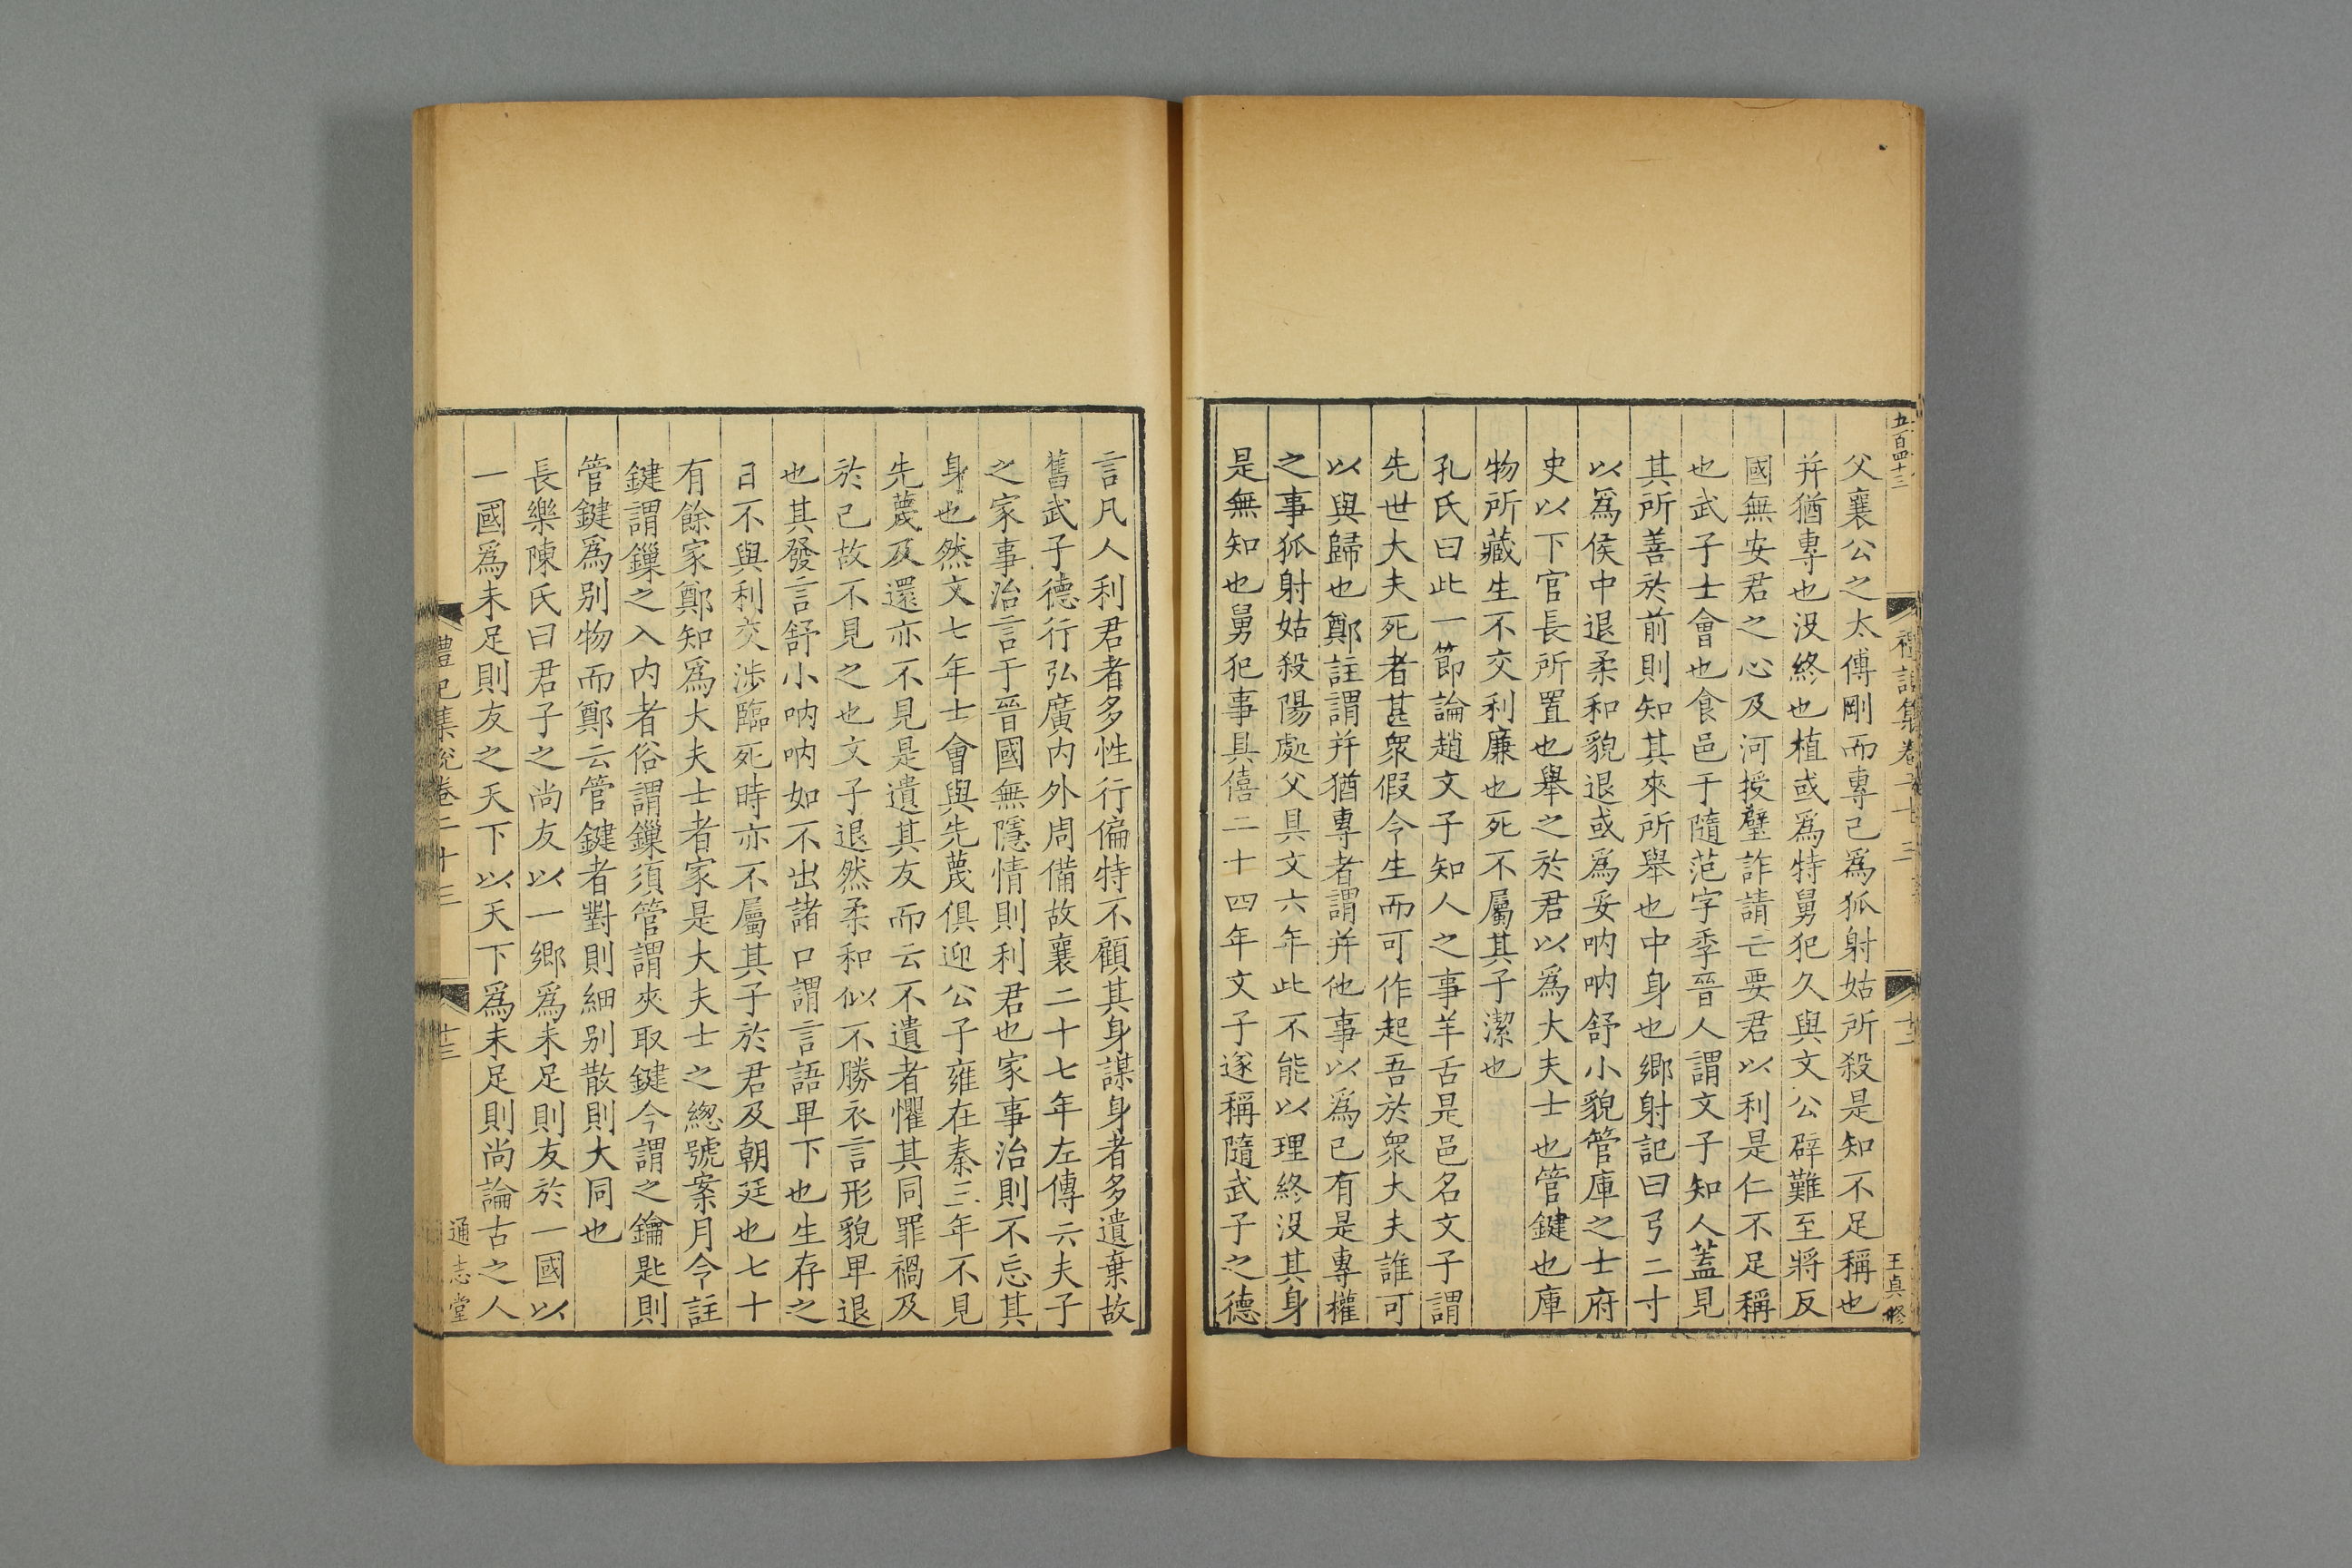 五百四十三
父襄公之太傅剛而專己爲狐射姑所殺是知不足稱也
并猶專也沒終也植或爲特舅犯久與文公辟難至將反
國無安君之心及河授璧詐請亡要君以利是仁不足稱
也武子士會也食邑于隨范字季晉人謂文子知人蓋見
其所善於前則知其來所舉也中身也鄉射記曰弓二寸
以爲侯中退柔和貌退或爲妥吶吶舒小貌管庫之士府
史以下官長所置也舉之於君以爲大夫士也管鍵也庫
物所藏生不交利廉也死不屬其子潔也
孔氏曰此一節論趙文子知人之事羊舌是邑名文子謂
先世大夫死者甚衆假令生而可作起吾於衆大夫誰可
以與歸也鄭註謂并猶專者謂并他事以爲己有是專權
之事狐射姑殺陽處父具文六年此不能以理終沒其身
是無知也舅犯事具僖二十四年文子遂稱隨武子之德
王真修
言凡人利君者多性行偏特不顧其身謀身者多遺棄故
舊武子德行弘廣内外周備故襄二十七年左傳云夫子
之家事治言于晉國無隱情則利君也家事治則不忘其
身也然文七年士會與先蔑俱迎公子雍在秦三年不見
先蔑及還亦不見是遺其友而云不遺者懼其同罪禍及
於己故不見之也文子退然柔和似不勝衣言形貌卑退
也其發言舒小吶吶如不出諸口謂言語卑下也生存之
日不與利交涉臨死時亦不屬其子於君及朝廷也七十
有餘家鄭知爲大夫士者家是大夫士之緫號案月令註
鍵謂鏁之入内者俗謂鏁須管謂夾取鍵今謂之鑰匙則
管鍵爲别物而鄭云管鍵者對則細别散則大同也
長樂陳氏曰君子之尚友以一鄉爲未足則友於一國以
一國爲未足則友之天下以天下爲未足則尚論古之人
禮記集說卷二十三
通志堂